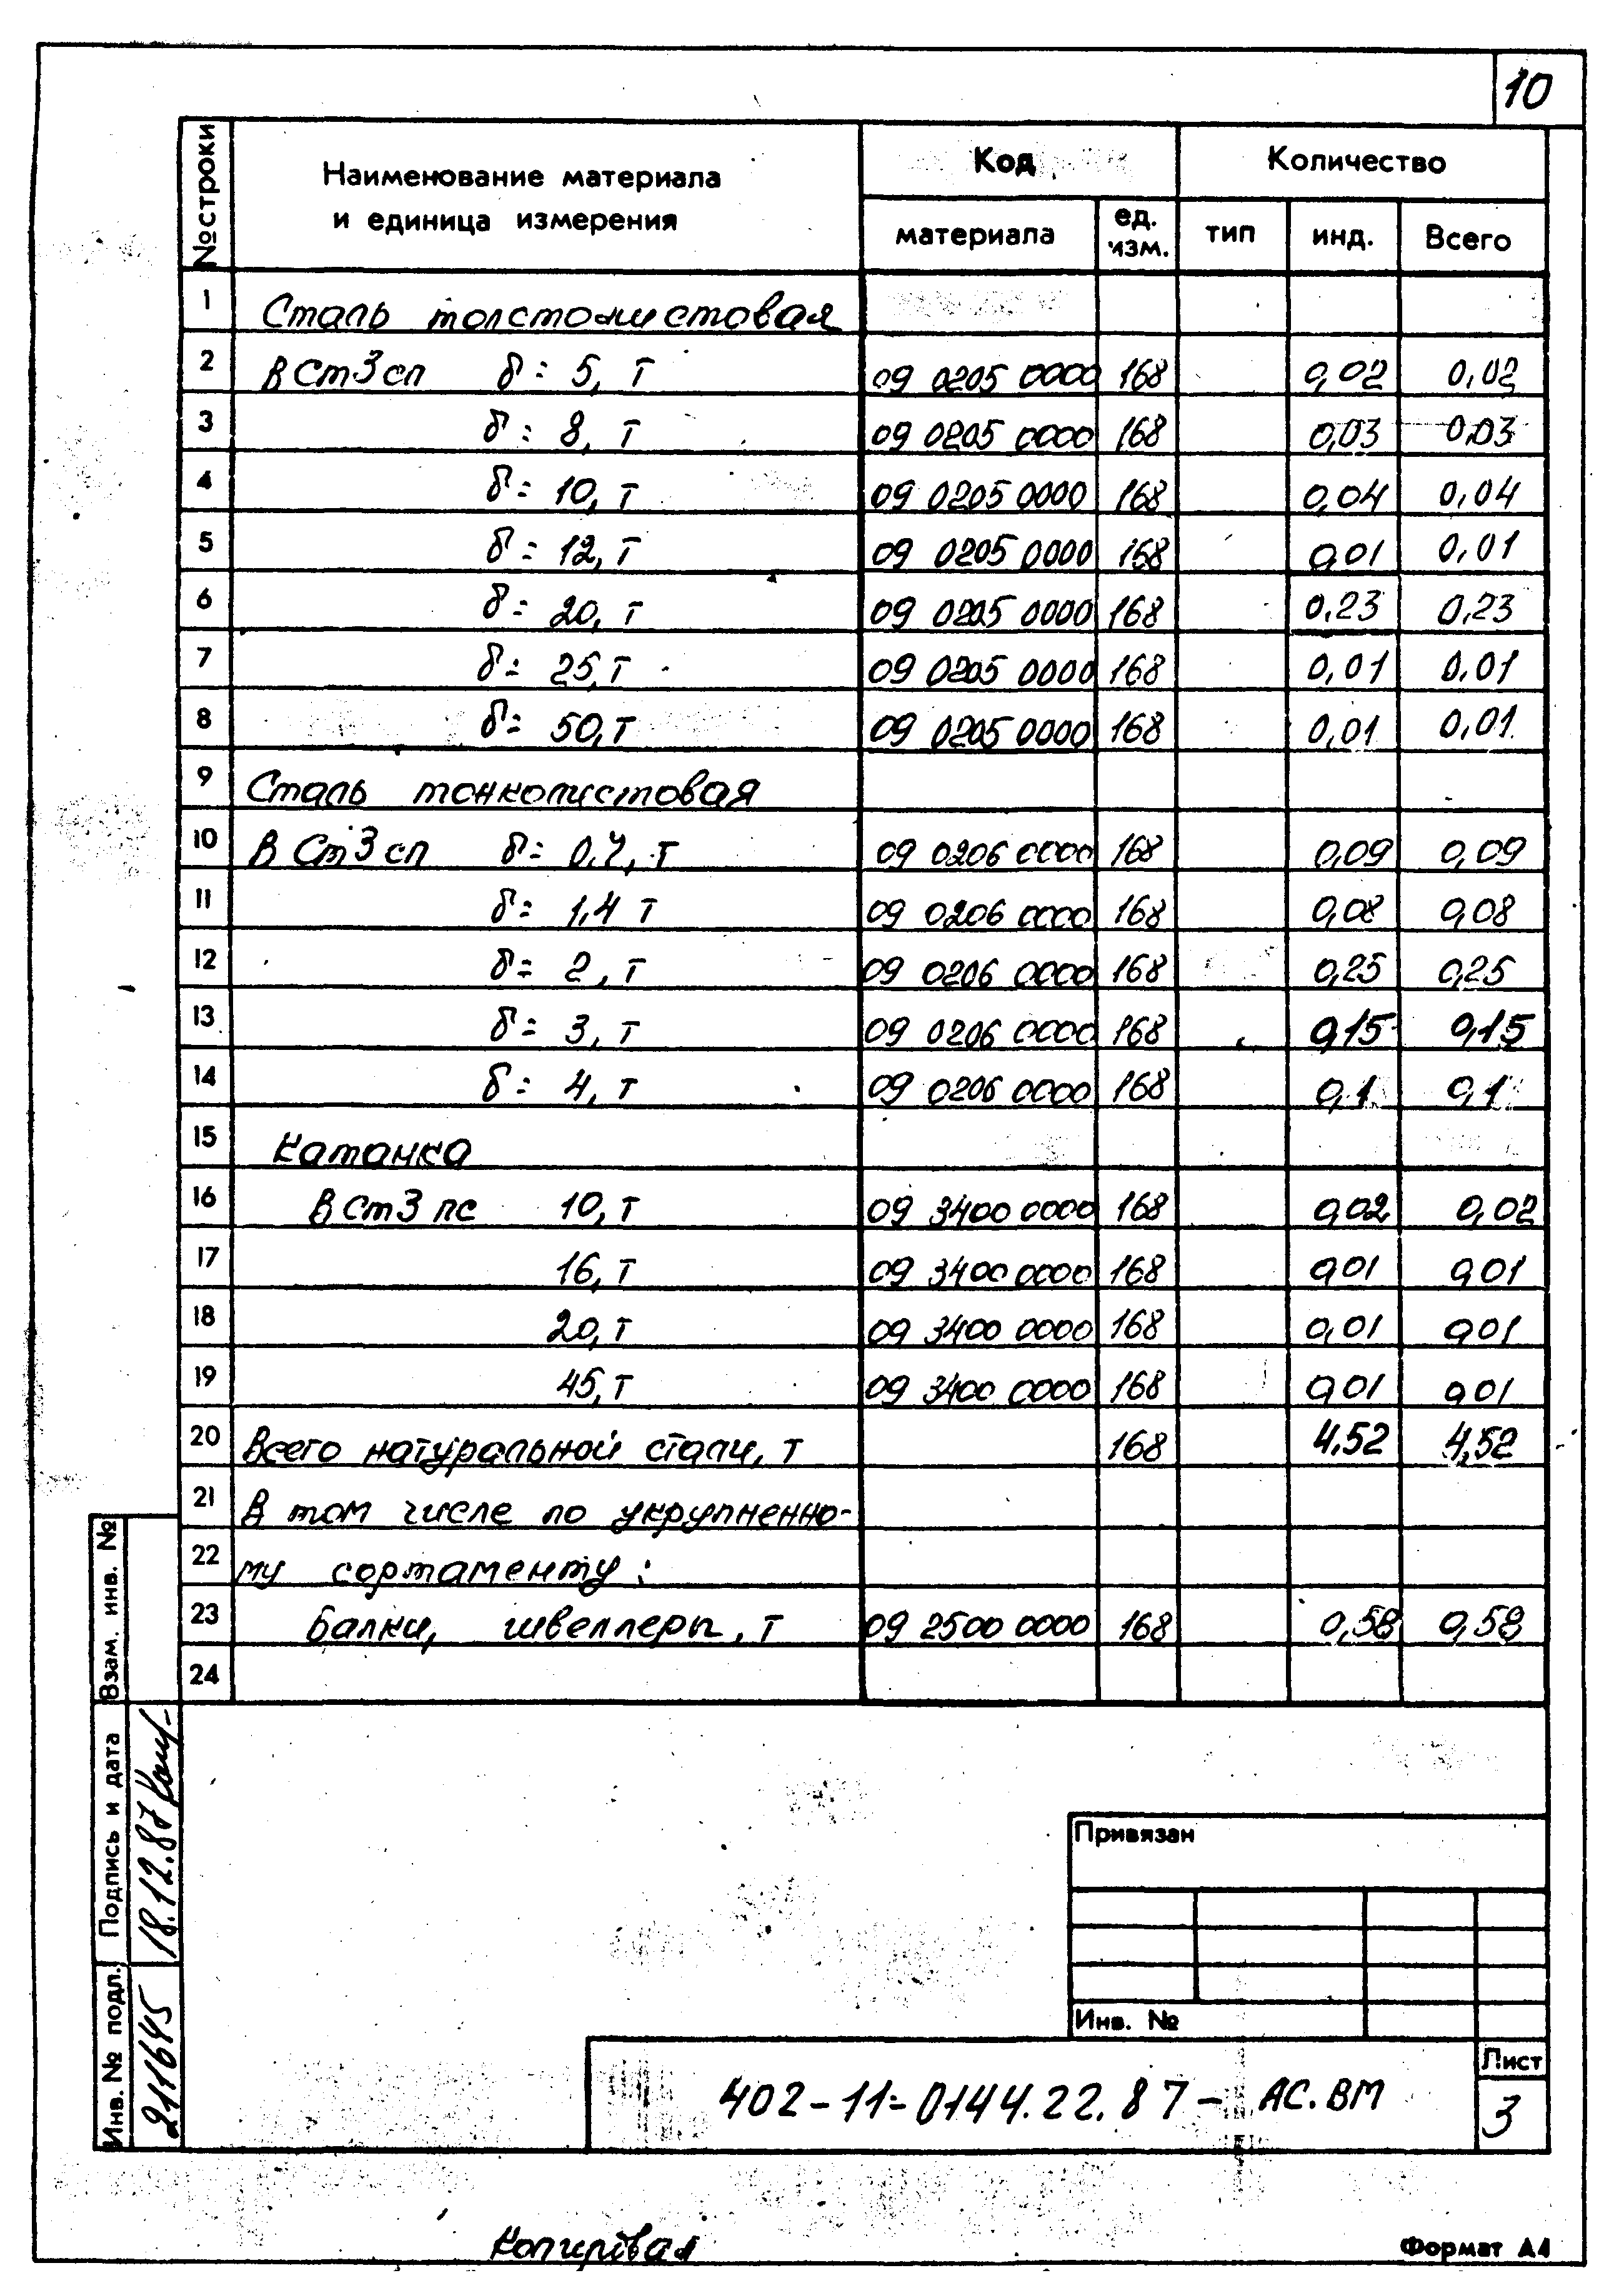 10
№ строки
Наименование материала
и единица измерения
Код
Количество
материала
ед.
изм.
тип
инд.
Всего
1 Сталь толстолистовая
2 ВСт3сп δ= 5, т 09 0205 0000 168 0,02 0,02
3 δ= 8, т 09 0205 0000 168 0,03 0,03
4 δ= 10, т 09 0205 0000 168 0,04 0,04
5 δ= 12, т 09 0205 0000 168 0,01 0,01
6 δ= 20, т 09 0205 0000 168 0,23 0,23
7 δ= 25, т 09 0205 0000 168 0,01 0,01
8 δ= 50, т 09 0205 0000 168 0,01 0,01
9 Сталь тонколистовая
10 ВСт3сп δ= 0,7, т 09 0206 0000 168 0,09 0,09
11 δ= 1,4 т 09 0206 0000 168 0,08 0,08
12 δ= 2, т 09 0206 0000 168 0,25 0,25
13 δ= 3, т 09 0206 0000 168 0,15 0,15
14 δ= 4, т 09 0206 0000 168 0,1 0,1
15 Катанка
16 ВСт3пс 10, т 09 3400 0000 168 0,02 0,02
17 16, т 09 3400 0000 168 0,01 0,01
18 20, т 09 3400 0000 168 0,01 0,01
19 45, т 09 3400 0000 168 0,01 0,01
20 Всего натуральной стали, т 168 4,52 4,52
21 В том числе по укрупненно-
22 му сортаменту:
23 Балки, швеллеры, т 09 2500 0000 168 0,58 0,58
24
Взам. инв. №
Подпись и дата
18.12.87
Инв. № подл.
211645
Привязан
Инв. №
402-11-0144.22.87- АС.ВМ
Лист
3
Копировал
Формат А4